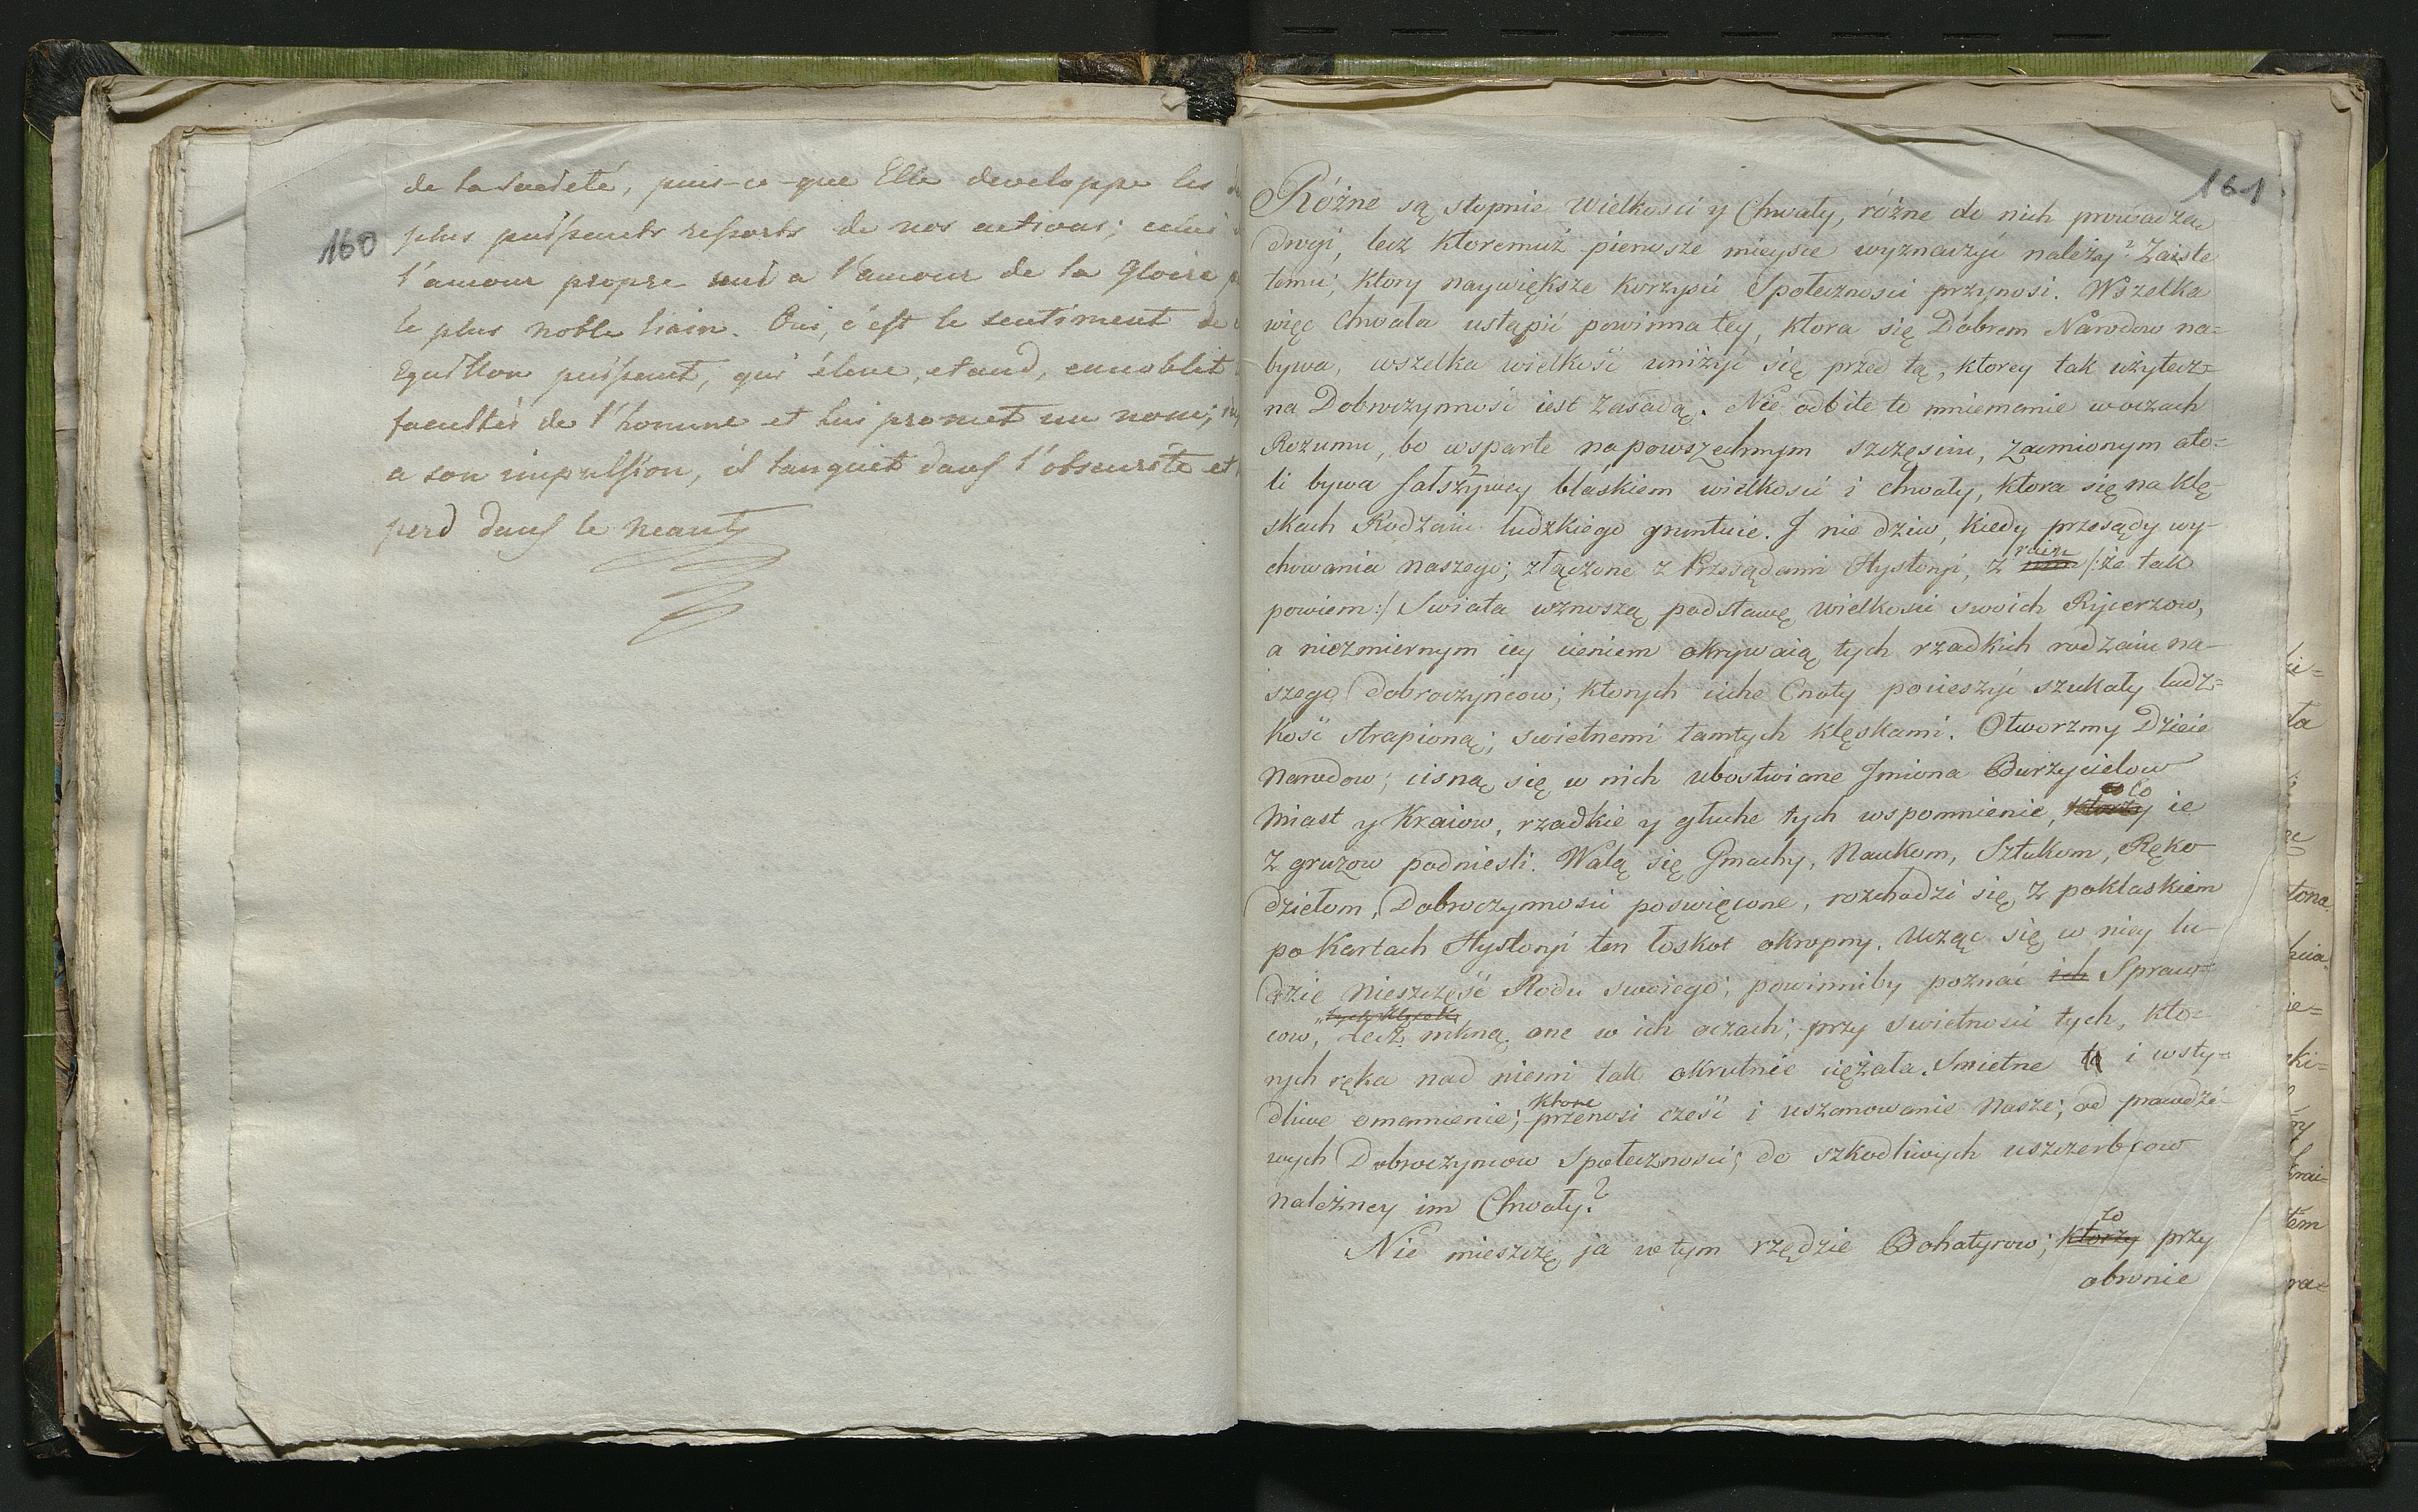 160
de la Société, puis-ce-que Elle developpe les
plus puissants ressorts de nos actions; celui
l'amour propre uni a l'amour de la Gloire
le plus noble lien. Oui, c'est le sentiment de
Eguillon puissant, qui éleve, etand, ennoblit
facultés de l'homme et lui promet un nom;
a son impulsion, il languit dans l'obscurité et
perd dans le neant
161
Różne są stopnie Wielkości y Chwały, różne do nich prowadzą
drogi, lecz ktoremuż pierwsze mieysce wyznaczyć należy? Zaiste
temu, ktory naywiększe korzyści Społeczności przynosi. Wszelka
więc Chwała ustąpić powinna tey, ktora się Dobrem Narodow na=
bywa, wszelka wielkość uniżyć się przed tą, ktorey tak użytecz=
na Dobroczynność iest zasadą. Nie odbite to mniemanie w oczach
Rozumu, bo wsparte na powszechnym szczęściu, zaćmionym ato=
li bywa fałszywey blaskiem wielkości i chwały, ktora się na klę-
skach Rodzaiu ludzkiego gruntuie. I nie dziw, kiedy przesądy wy-
chowania naszego; złączone z Przesądami Hystoryi, z /:że tak
powiem:/ Swiata wznoszą podstawę wielkości swoich Rycerzow,
a niezmiernym iey cieniem okrywaią tych rzadkich rodzaiu na-
szego Dobroczyńcow; ktorych ciche Cnoty pocieszyć szukały ludz=
kość strapioną; swietnemi tamtych klęskami. Otworzmy Dzieie
Narodow; cisną się w nich ubostwione Imiona Burzycielow
Miast y Kraiow, rzadkie y głuche tych wspomnienie, ktorzy co ie
z gruzow podnieśli. Walą się Gmachy, Naukom, Sztukom, Ręko
dziełom, Dobroczynności poswięcone, rozchodzi się z poklaskiem
po Kartach Hystoryi ten łoskot okropny. Ucząc się w niey lu-
dzie Nieszczęść Rodu swoiego; powinniby poznać ich Spraw=
cow, Lecz mkną one w ich oczach; przy swietności tych, kto=
rych ręka nad niemi tak okrutnie ciężała. Smietne to i wsty=
dliwe omamienie; ktore przenosi cześć i uszanowanie nasze; od prawdzi-
wych Dobroczyncow Społeczności; do szkodliwych uszczerbcow
należney im Chwały?
Nie mieszczę ja w tym rzędzie Bohatyrow; ktorzy co przy
obronie